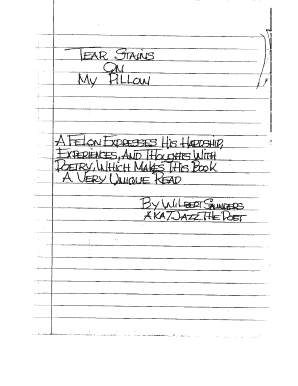 TEAR STAINS
ON
MY PILLOW
A FELON EXPRESSES HIS HARDSHIP,
EXPERIENCES, AND THOUGHTS WITH
POETRY, WHICH MAKES THIS BOOK
A VERY UNIQUE READ
BY WILBERT SAUNDERS
A.K.A/JAZZ THE POET